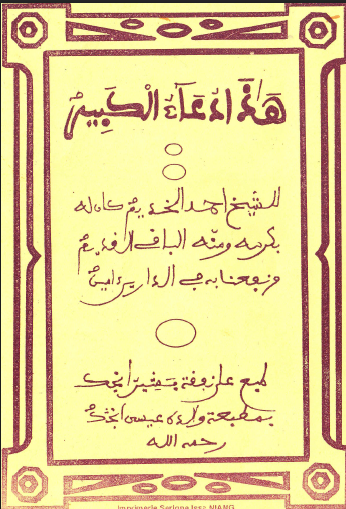 هَذَا دعَآء الْكَبِير
للشيخ احمد الخديم كان له
بكرمه ومنه الباقي القديم
ونفعنا به في الدارين امين
طبع على نفقة بشير
بمطبعة والده عيسى
رحمه الله
Imprimerie Serigne Issa NIANG